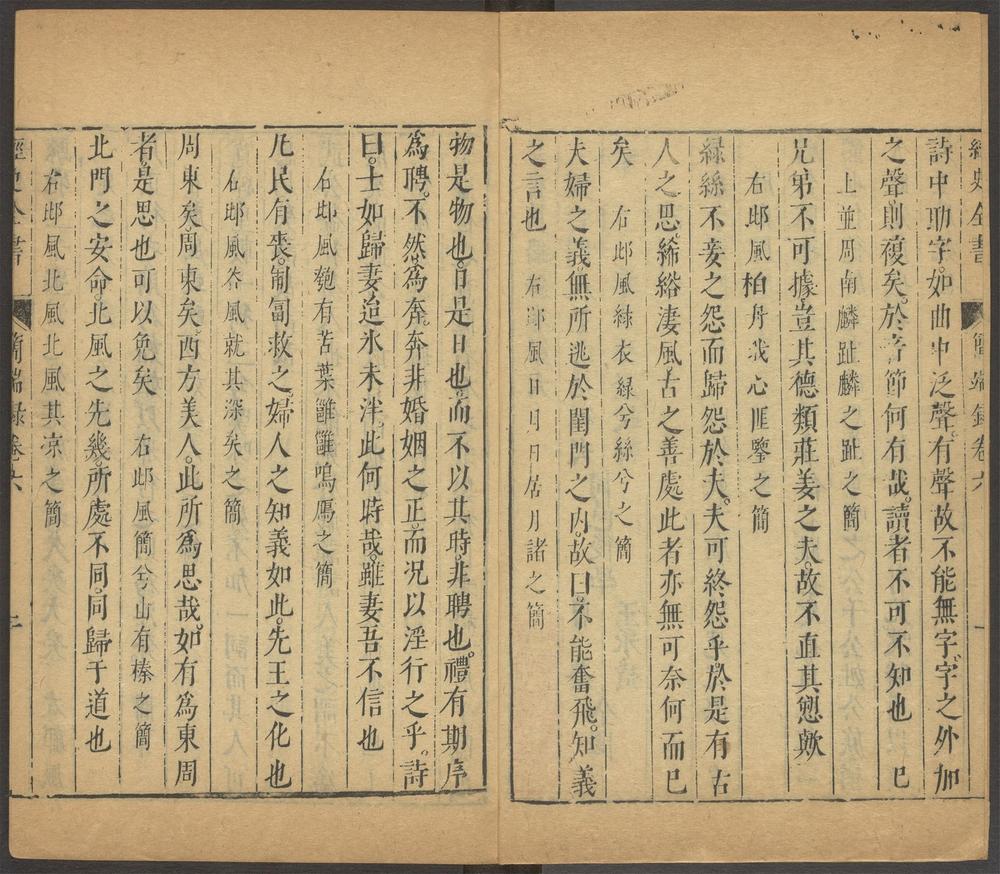 經史全書
簡端錄卷六
一
詩中助字如曲中泛聲有聲故不能無字字之外加
之聲則複矣於音節何有哉讀者不可不知也 已
上並周南麟趾麟之趾之簡
兄弟不可據豈其德類莊姜之夫故不直其愬歟
右邶風柏舟我心匪鑒之簡
綠絲不妾之怨而歸怨於夫夫可終怨乎於是有古
人之思絺綌淒風古之善處此者亦無可奈何而已
矣 右邶風綠衣綠兮絲兮之簡
夫婦之義無所逃於閨門之內故曰不能奮飛知義
之言也 右邶風日月日居月諸之簡
物是物也日是日也而不以其時非聘也禮有期序
爲聘不然爲奔奔非婚姻之正而況以淫行之乎詩
曰士如歸妻迨氷未泮此何時哉雖妻吾不信也
右邶風匏有苦葉雝雝鳴鴈之簡
凡民有喪匍匐救之婦人之知義如此先王之化也
右邶風谷風就其深矣之簡
周東矣周東矣西方美人此所爲思哉如有爲東周
者是思也可以免矣 右邶風簡兮山有榛之簡
北門之安命北風之先幾所處不同同歸于道也
右邶風北風北風其凉之簡
經史全書
簡端錄卷六
二